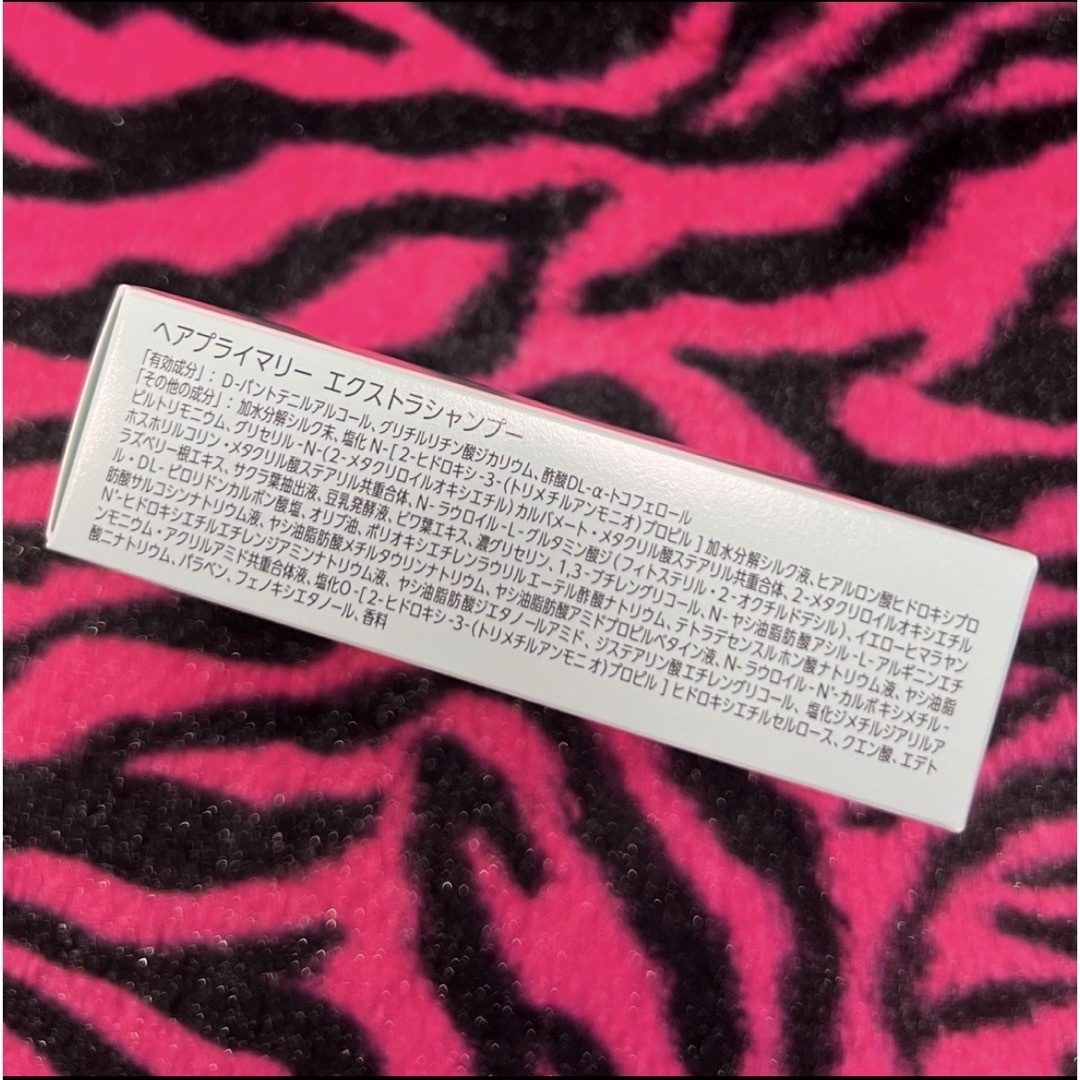 ヘアプライマリー エクストラシャンプー
「有効成分」: D-パントテニルアルコール、グリチルリチン酸ジカリウム、酢酸DL-α-トコフェロール
「その他の成分」: 加水分解シルク末、塩化N-[2-ヒドロキシ-3-(トリメチルアンモニオ)プロピル]加水分解シルク液、ヒアルロン酸ヒドロキシプロ
ピルトリモニウム、グリセリル-N-(2-メタクリロイルオキシエチル)カルバメート・メタクリル酸ステアリル共重合体、2-メタクリロイルオキシエチル
ホスホリルコリン・メタクリル酸ステアリル共重合体、N-ラウロイル-L-グルタミン酸ジ(フィトステリル・2-オクチルドデシル)、イエローヒマラヤン
ラズベリー根エキス、サクラ葉抽出液、豆乳発酵液、ビワ葉エキス、濃グリセリン、1,3-ブチレングリコール、N-ヤシ油脂肪酸アシル-L-アルギニンエチ
ル・DL-ピロリドンカルボン酸塩、オリブ油、ポリオキシエチレンラウリルエーテル酢酸ナトリウム、テトラデセンスルホン酸ナトリウム液、ヤシ油脂
肪酸サルコシンナトリウム液、ヤシ油脂肪酸メチルタウリンナトリウム、ヤシ油脂肪酸アミドプロピルベタイン液、N-ラウロイル-N'-カルボキシメチル-
N'-ヒドロキシエチルエチレンジアミンナトリウム液、ヤシ油脂肪酸ジエタノールアミド、ジステアリン酸エチレングリコール、塩化ジメチルジアリルア
ンモニウム・アクリルアミド共重合体液、塩化O-[2-ヒドロキシ-3-(トリメチルアンモニオ)プロピル]ヒドロキシエチルセルロース、クエン酸、エデト
酸二ナトリウム、パラベン、フェノキシエタノール、香料